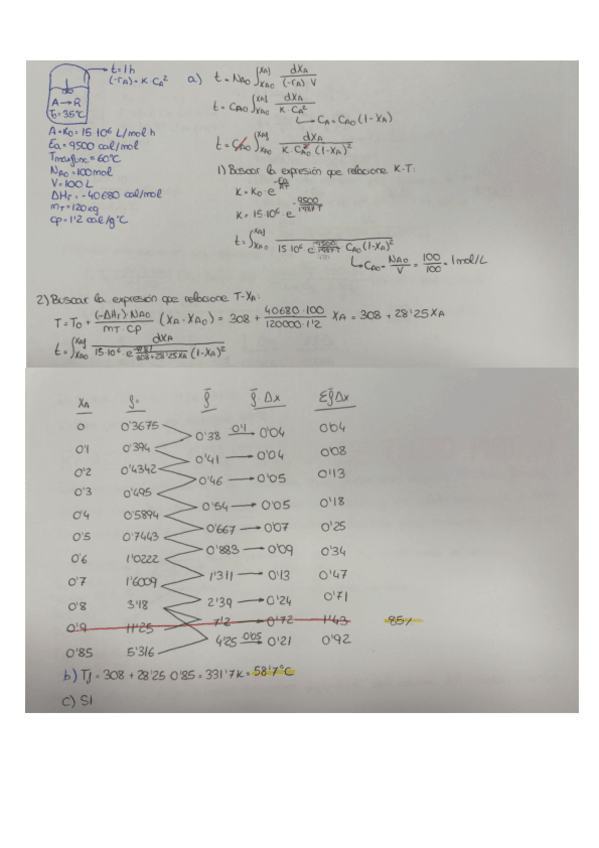 t = 1h
(-rA) = K·CA²
A → R
T0 = 35°C
A = K0 = 15·10⁶ L/mol h
Ea = 9500 cal/mol
= 60°C
NA0 = 100 mol
V = 100 L
ΔHr = -40680 cal/mol
mT = 120 kg
Cp = 1'2 cal/g°C
a) t = NA0 ∫XA0^XAf dXA / (-rA) V
t = CA0 ∫XA0^XAf dXA / K·CA²
↳ CA = CA0 (1-XA)
t = CA0 ∫XA0^XAf dXA / K·CA0² (1-XA)²
1) Buscar la expresión que relacione K-T:
K = K0·e^(-Ea/RT)
K = 15·10⁶·e^(-9500/1'987·T)
t = ∫XA0^XAf / 15·10⁶·e^(-9500/1'987T) CA0 (1-XA)²
↳ CA0 = NA0/V = 100/100 = 1 mol/L
2) Buscar la expresión que relacione T-XA:
T = T0 + (-ΔHr) NA0 / mT·Cp (XA-XA0) = 308 + 40680·100 / 120000·1'2 XA = 308 + 28'25 XA
t = ∫XA0^XAf dXA / 15·10⁶·e 308+28'25XA (1-XA)²
XA ρ= ρ̄ ρ̄·Δx Σρ̄Δx
0 0'3675
0'38 0'1→ 0'04 0'04
0'1 0'394
0'41 → 0'04 0'08
0'2 0'4342
0'46 → 0'05 0'13
0'3 0'495
0'54 → 0'05 0'18
0'4 0'5894
0'667 → 0'07 0'25
0'5 0'7443
0'883 → 0'09 0'34
0'6 1'0222
1'311 → 0'13 0'47
0'7 1'6009
2'39 → 0'24 0'71
0'8 3'18
0'9 11'25 7'2 → 0'72 1'43 85%
4'25 0'05→ 0'21 0'92
0'85 5'316
b) Tf = 308 + 28'25·0'85 = 331'7K = 58'7°C
c) SI